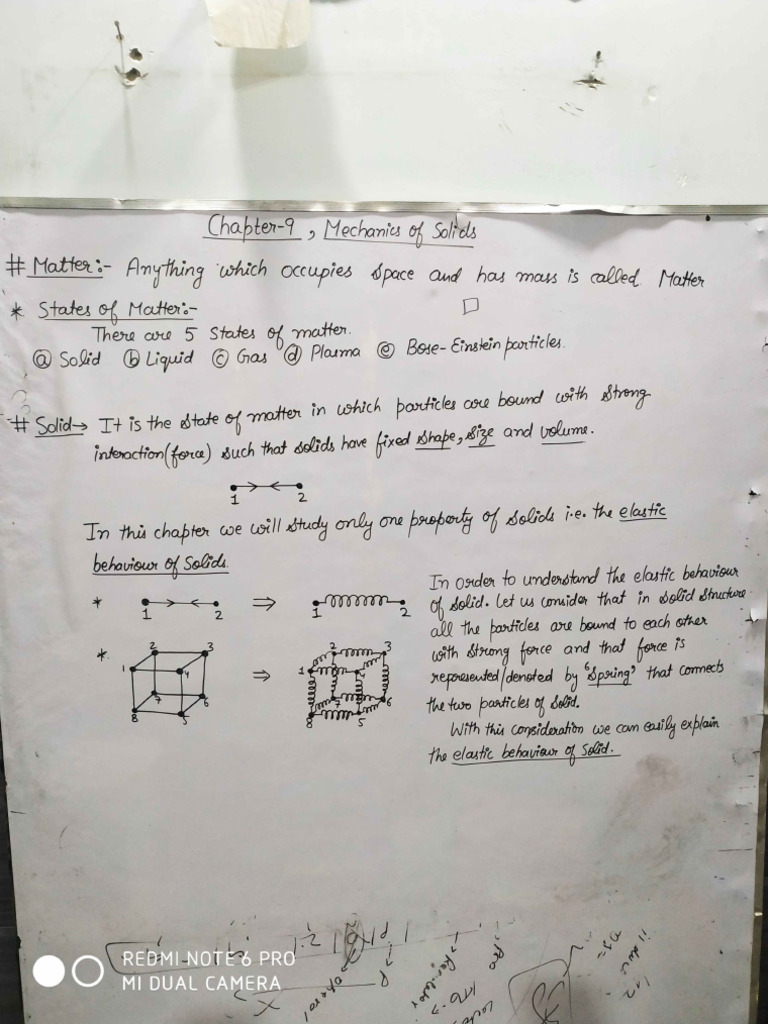 Chapter-9, Mechanics of Solids
# Matter:- Anything which occupies space and has mass is called Matter
* States of Matter:-
There are 5 States of matter.
ⓐ Solid ⓑ Liquid ⓒ Gas ⓓ Plasma ⓔ Bose-Einstein particles.
# Solid→ It is the state of matter in which particles are bound with strong
interaction(force) such that solids have fixed shape, size and volume.
1 2
In this chapter we will study only one property of solids i.e. the elastic
behaviour of Solids.
* 1 2 ⇒ 1 2
* 1 2 3 4 5 6 7 8 ⇒ 1 2 3 4 5 6 7 8
In order to understand the elastic behaviour
of solid. Let us consider that in solid structure
all the particles are bound to each other
with strong force and that force is
represented/denoted by "Spring" that connects
the two particles of Solid.
With this consideration we can easily explain
the elastic behaviour of Solid.
REDMI NOTE 6 PRO
MI DUAL CAMERA